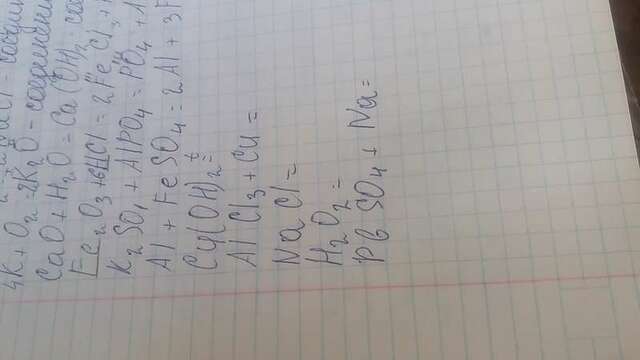 4K + O₂ = 2K₂O - соединения
CaO + H₂O = Ca(OH)₂ - сое
Fe₂O₃ + 6HCl = 2FeCl₃ +
K₂SO₄ + AlPO₄ = PO₄ +
Al + FeSO₄ = 2Al + 3F
Cu(OH)₂ t=
AlCl₃ + Cu =
NaCl =
H₂O₂ =
PbSO₄ + Na =